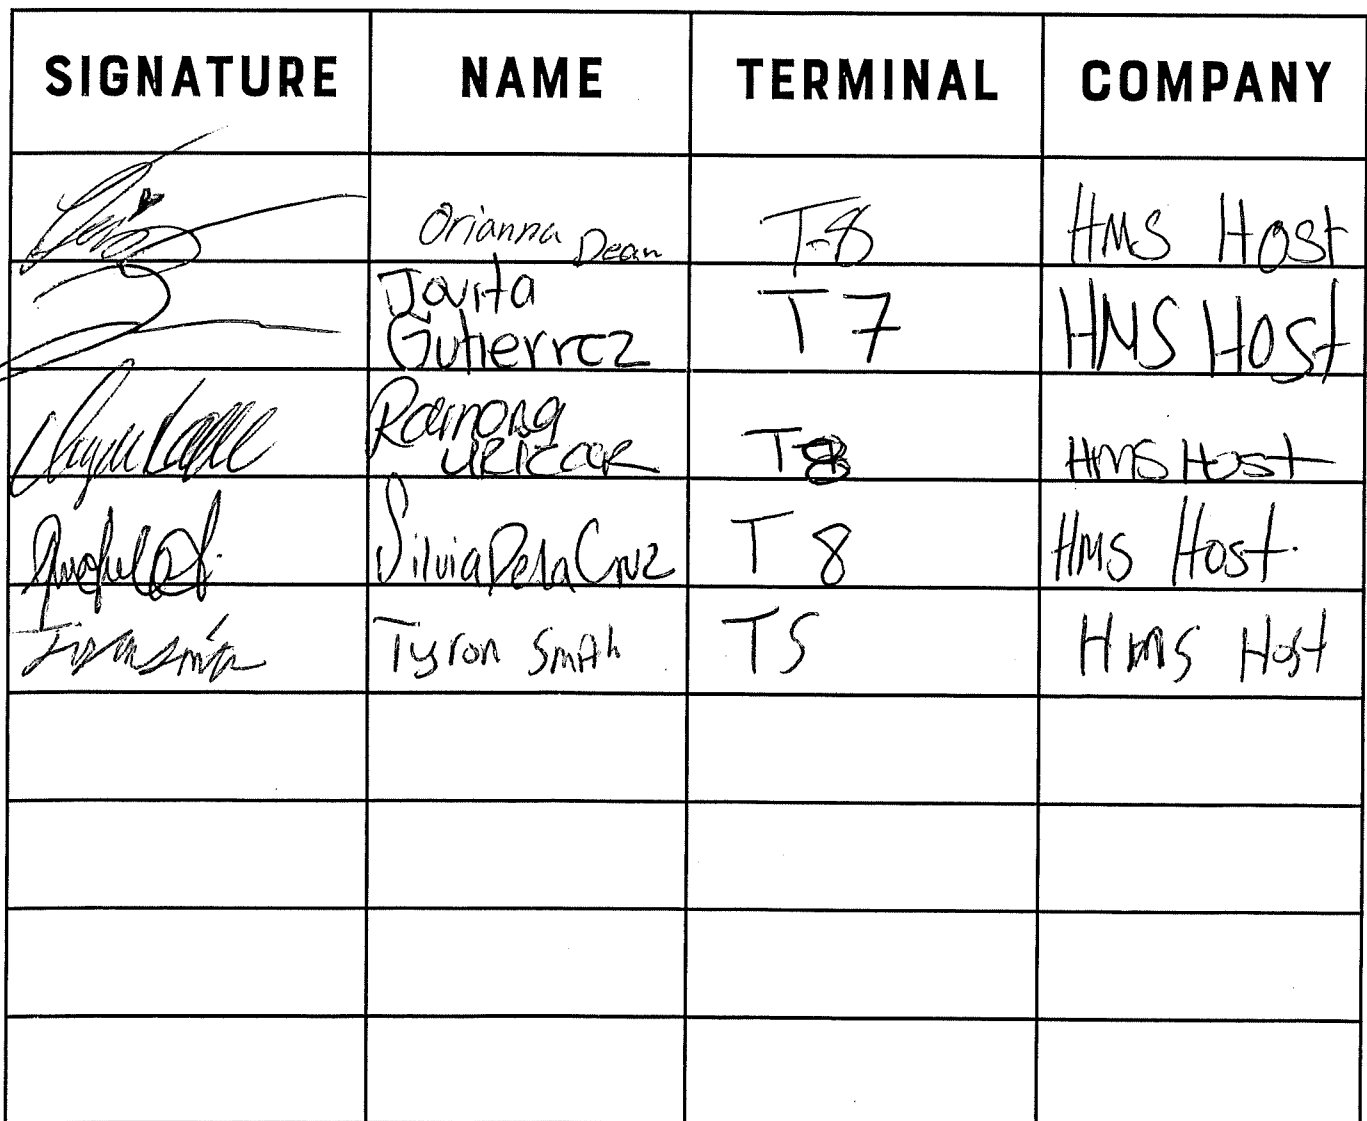 SIGNATURE NAME TERMINAL COMPANY
Orianna Dean T-8 HMS Host
Jovita
Gutierrez T 7 HMS Host
Ramona
T8 HMS Host
Silvia Dela Cruz T 8 HMS Host.
Tyron Smith T5 HMS Host